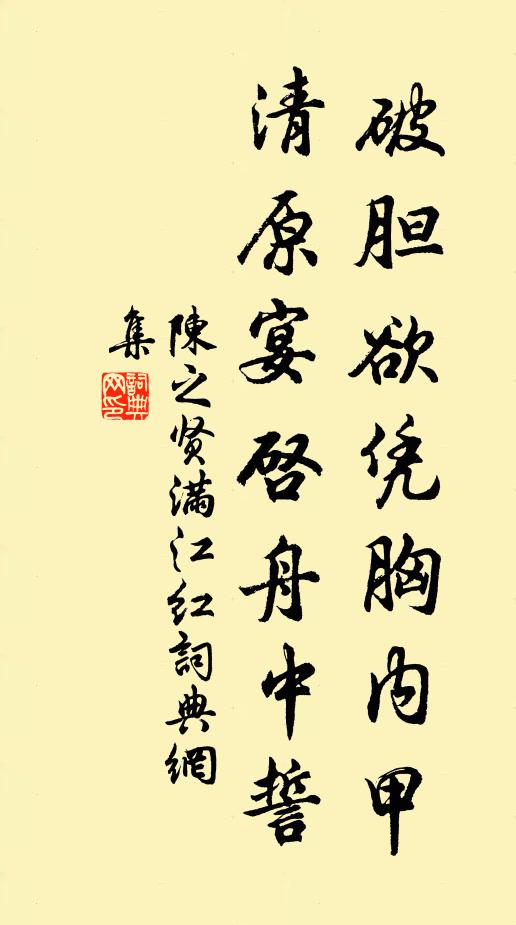 破胆欲凭胸内甲
清原宴启舟中誓
陳之贤满江红詞典網
集
詞典
网印